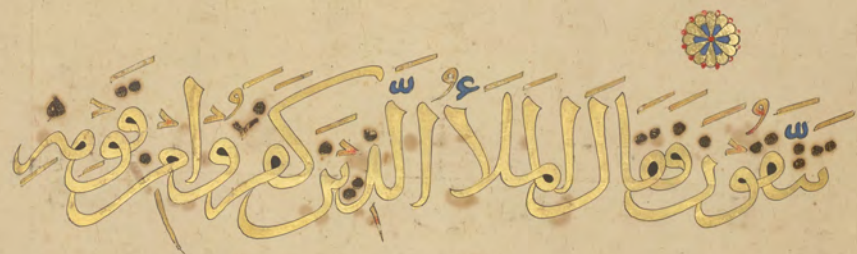 تَتَّقُونَ فَقَالَ الْمَلَأُ الَّذِينَ كَفَرُوا مِنْ قَوْمِهِ